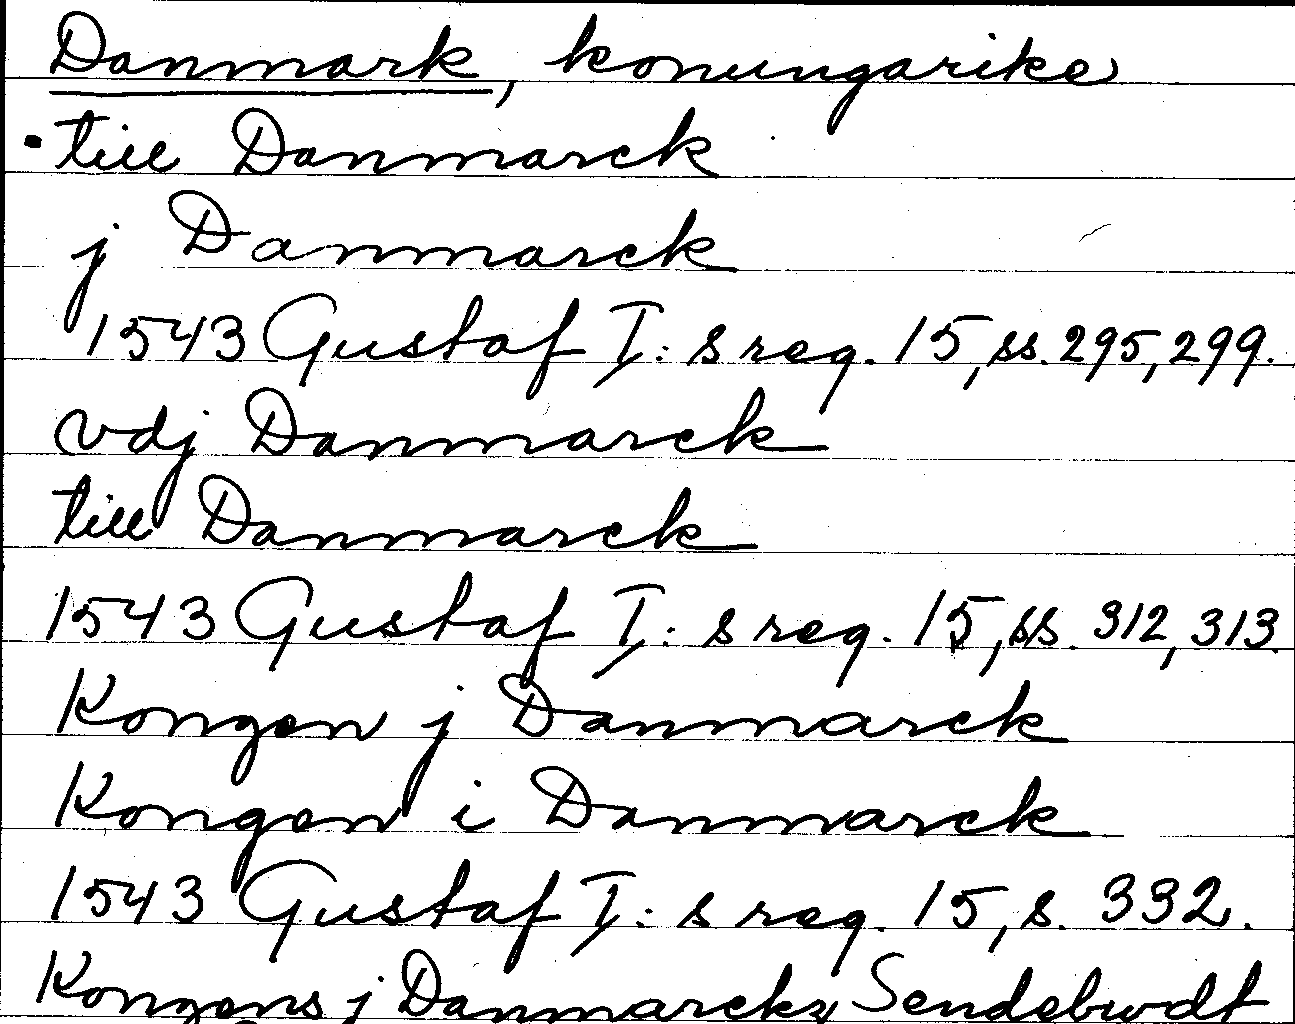 Danmark, konungarike
till Danmarck
j Danmarck
1543 Gustaf I: s reg. 15, ss. 295, 299.
vdj Danmarck
till Danmarck
1543 Gustaf I: s reg. 15, ss. 312, 313.
Kongen j Danmarck
Kongen i Danmarck
1543 Gustaf I: s reg. 15, s. 332.
Kongens j Danmarckz Sendebudt